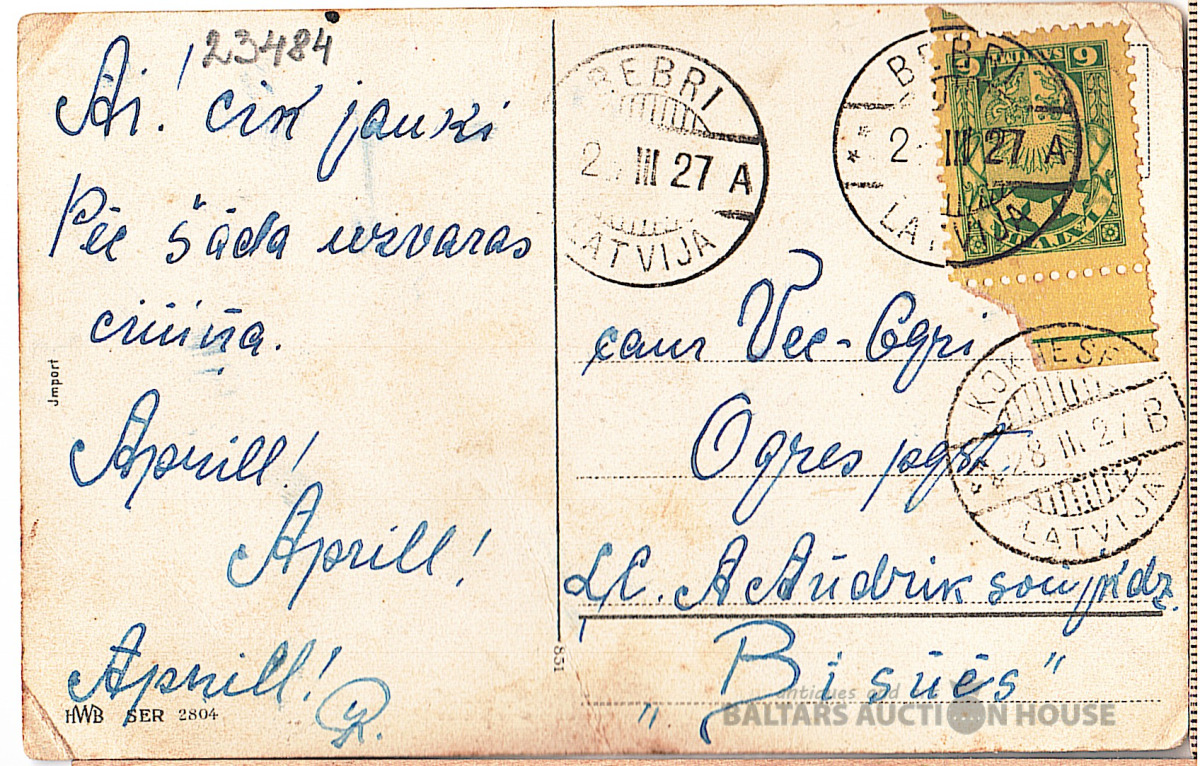 23484
Ai! cik jauki
Pēc šāda uzvaras
Aprill!
Aprill!
Aprill!
R.
Jmport
HWB SER 2804
851
BEBRI
2 III 27 A
LATVIJA
BEBRI
2 III 27 A
LATVIJA
6 SANTIMI 6
LATVIJA
caur Vec-Ogri
Ogres pgst.
KOKNESE
28 III 27 B
LATVIJA
antiques and
BALTARS AUCTION HOUSE